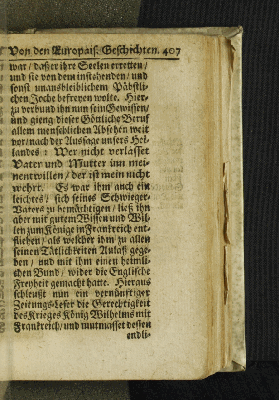 Von den Europäis. Geschichten. 407
war / daß er ihre Seelen erretten /
und sie von dem instehenden / und
sonst unausbleiblichem Päbstli-
chen Joche befreyen wolte. Hier-
zu verbund ihn nun sein Gewissen /
und gieng dieser Göttliche Beruf
allem menschlichen Absehen weit
vor / nach der Aussage unsers Hei-
landes : Wer nicht verlasset
Vater und Mutter um mei-
nentwillen / der ist mein nicht
wehrt. Es war ihm auch ein
leichtes / sich seines Schwieger-
Vaters zu bemächtigen / ließ ihn
aber mit gutem Wissen und Wil-
len zum Könige in Franckreich ent-
fliehen / als welcher ihm zu allen
seinen Tätlichkeiten Anlaß gege-
ben / und mit ihm einen heimli-
chen Bund / wider die Englische
Freyheit gemacht hatte. Hieraus
schleußt nun ein vernünftiger
Zeitungs-Leser die Gerechtigkeit
des Krieges König Wilhelms mit
Franckreich / und mutmasset dessen
endli-